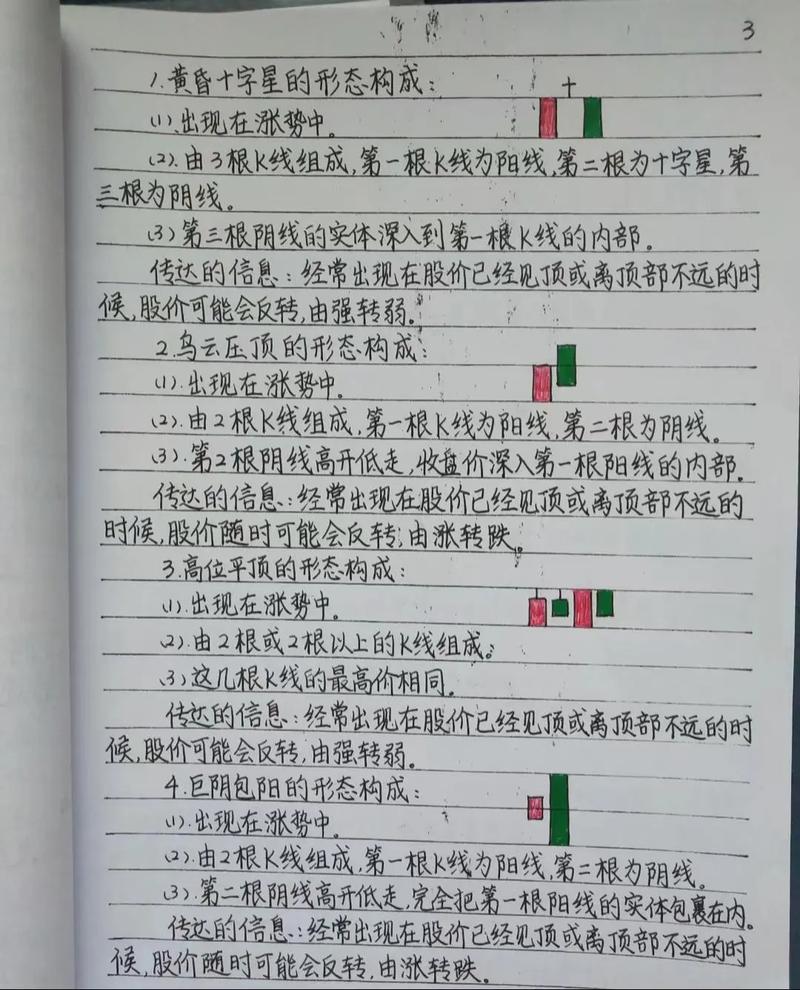 3
1.黄昏十字星的形态构成：
(1).出现在涨势中。
(2).由3根K线组成,第一根K线为阳线,第二根为十字星,第
三根为阴线。
(3)第三根阴线的实体深入到第一根K线的内部。
传达的信息：经常出现在股价已经见顶或离顶部不远的时
候,股价可能会反转,由强转弱。
2.乌云压顶的形态构成：
(1).出现在涨势中。
(2).由2根K线组成,第一根K线为阳线,第二根为阴线。
(3).第2根阴线高开低走,收盘价深入第一根阳线的内部。
传达的信息：经常出现在股价已经见顶或离顶部不远的
时候,股价随时可能会反转,由涨转跌。
3.高位平顶的形态构成：
(1).出现在涨势中。
(2).由2根或2根以上的K线组成。
(3)这几根K线的最高价相同。
传达的信息：经常出现在股价已经见顶或离顶部不远的时
候,股价可能会反转,由强转弱。
4.巨阴包阳的形态构成：
(1).出现在涨势中。
(2).由2根K线组成,第一根K线为阳线,第二根为阴线。
(3).第二根阴线高开低走,完全把第一根阳线的实体包裹在内。
传达的信息：经常出现在股价已经见顶或离顶部不远的时
候,股价随时可能会反转,由涨转跌。